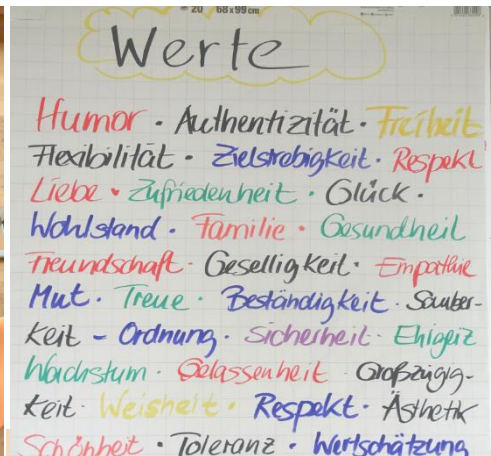 20 68x99cm
Werte
Humor · Authentizität · Freiheit
Flexibilität · Zielstrebigkeit · Respekt
Liebe · Zufriedenheit · Glück ·
Wohlstand · Familie · Gesundheit
Freundschaft · Geselligkeit · Empathie
Mut · Treue · Beständigkeit · Sauber-
keit – Ordnung · Sicherheit · Ehrgeiz
Wachstum · Gelassenheit · Großzügig-
keit · Weisheit · Respekt · Ästhetik
Schönheit · Toleranz · Wertschätzung